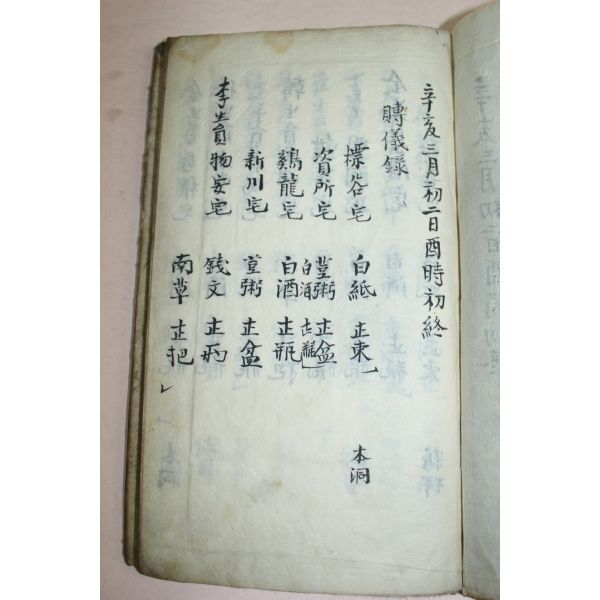 辛亥三月初二日酉時初終
賻儀錄
標谷宅 白紙 㱏束 本洞
資所宅 荳粥 㱏盆 白酒 㱏瓶
鷄龍宅 白酒 㱏瓶
新川宅 荳粥 㱏盆
李生員物安宅 錢文
南草 㱏把